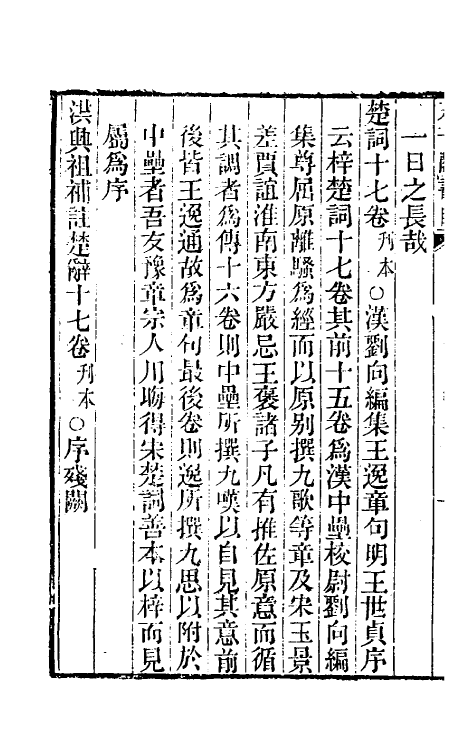 一日之長哉
楚詞十七卷刋本○漢劉向編集王逸章句明王世貞序
云梓楚詞十七卷其前十五卷爲漢中壘校尉劉向編
集尊屈原離騷爲經而以原别撰九歌等章及宋玉景
差賈誼淮南東方嚴忌王褒諸子凡有推佐原意而循
其調者爲傳十六卷則中壘所撰九嘆以自見其意前
後皆王逸通故爲章句最後卷則逸所撰九思以附於
中壘者吾友豫章宗人用晦得宋楚詞善本以梓而見
屬爲序
洪興祖補註楚辭十七卷刋本○序殘闕